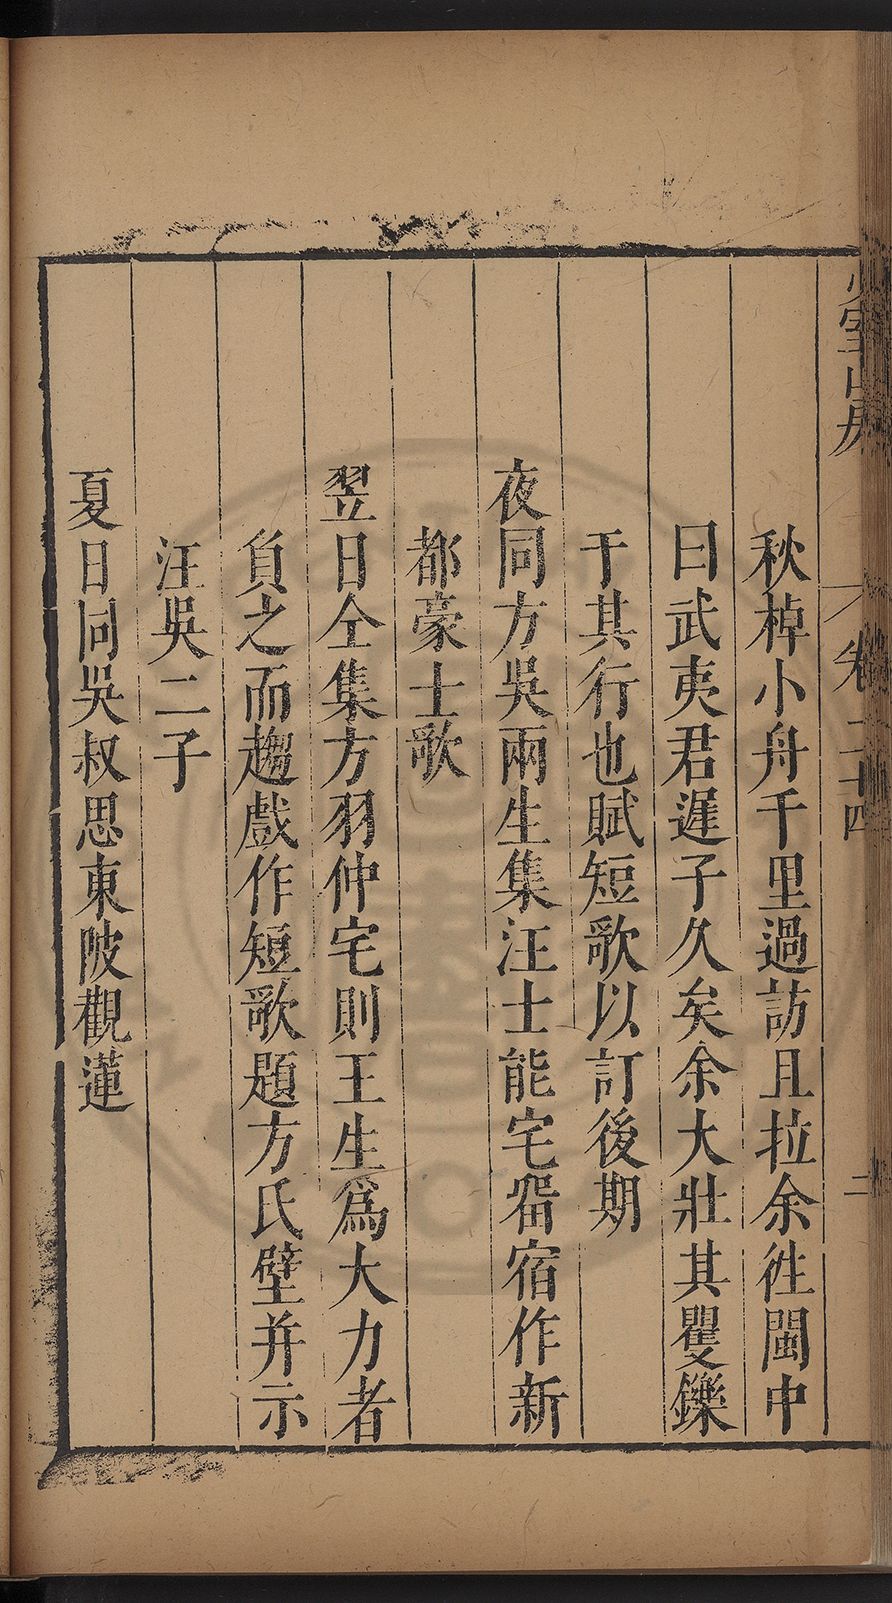 少室山房　卷二十四　二
秋棹小舟千里過訪且拉余徃閩中
曰武夷君遲子久矣余大壯其矍鑠
于其行也賦短歌以訂後期
夜同方吳兩生集汪士能宅畱宿作新
都豪士歌
翌日仝集方羽仲宅則王生爲大力者
負之而趨戲作短歌題方氏壁并示
汪吳二子
夏日同吳叔思東陂觀蓮